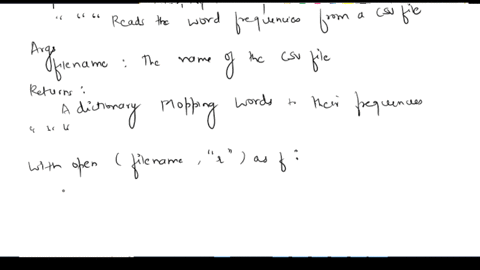 " " " Reads the word frequencies from a CSV file
Args
filename : The name of the CSV file
Returns :
A dictionary Mapping words to their frequences
" " "
With open ( filename , "r" ) as f :